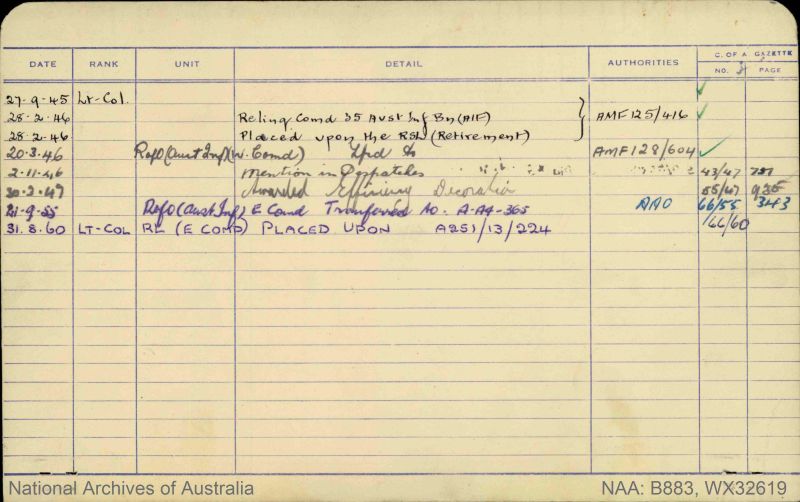 DATE RANK UNIT DETAIL AUTHORITIES C. OF A. GAZETTE
NO. PAGE
27-9-45 Lt-Col.
28-2-46 Relinq Comd 35 Aust Inf Bn (AIF) AMF125/416
28-2-46 Placed upon the RSL (Retirement)
20-3-46 RofO (Aust Inf) (W. Comd) AMF128/604
2-11-46 Mention in Despatches 43/47
Awarded Efficiency Decoration 55/47 935
21-9-55 RofO (Aust Inf) E Comd Transferred to. A-A9-365 AAO 66/55 343
31.8.60 LT-COL RL (E COMD) PLACED UPON A251/13/224 /66/60
National Archives of Australia NAA: B883, WX32619